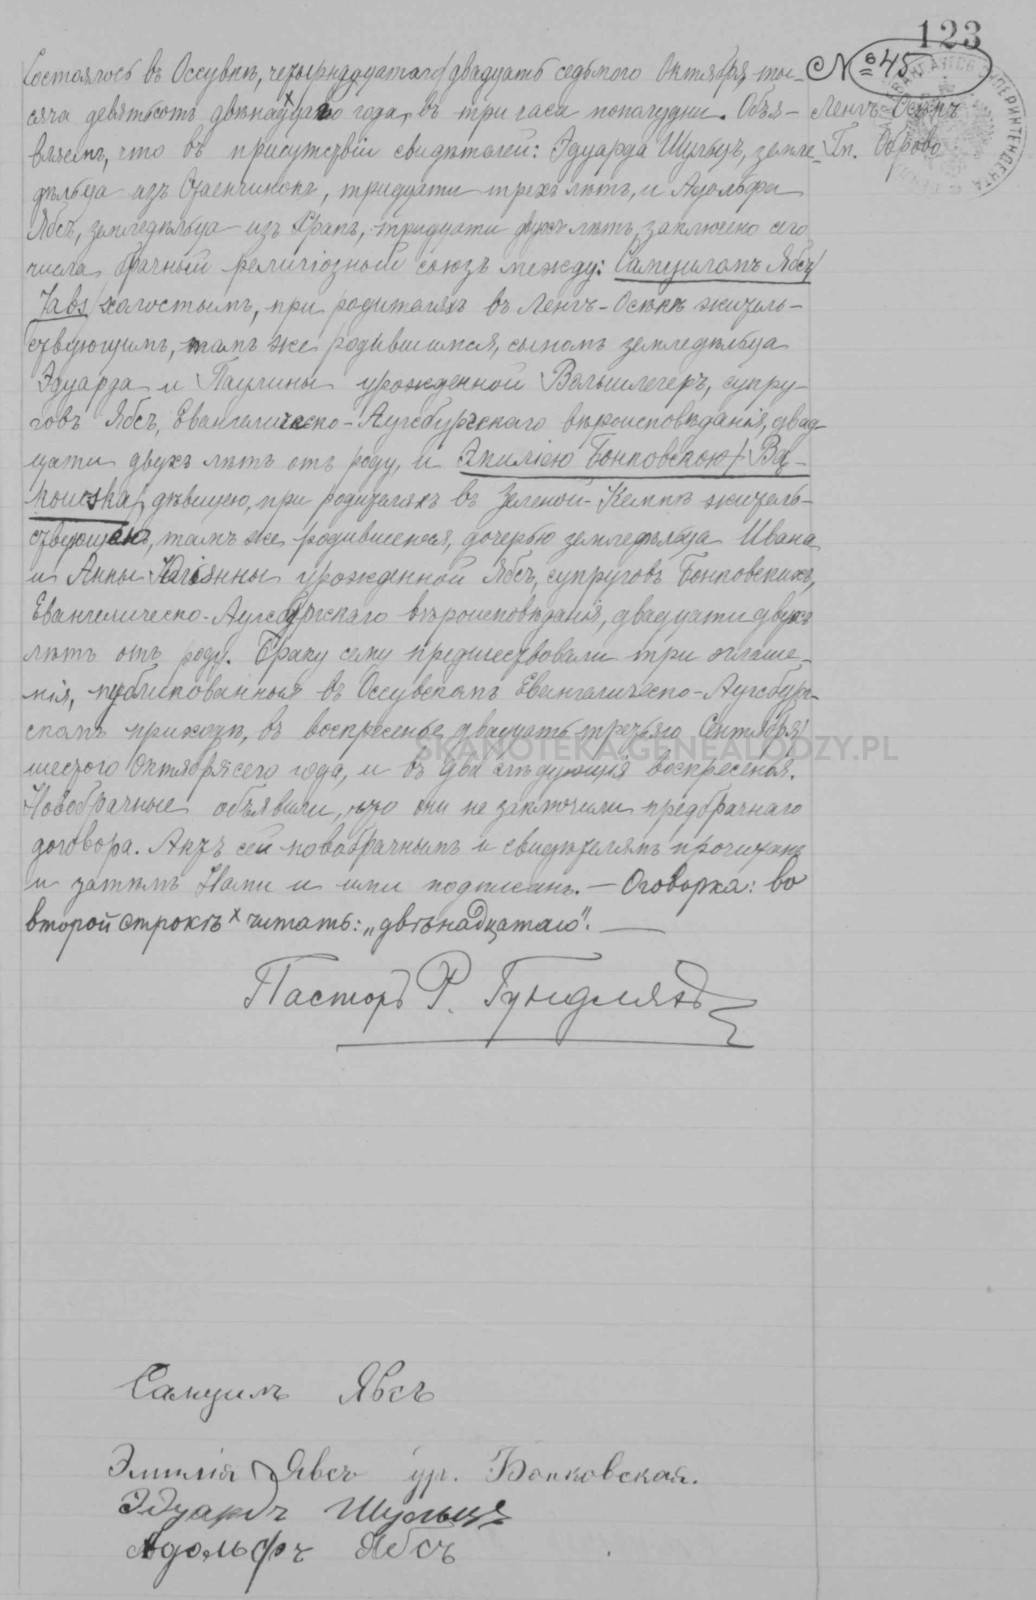 123
№ 45
Ленчъ-Осѣкъ
Гп. Оброво
Состоялось въ Оссувкѣ, четырнадцатаго/двадцать седьмого Октября, ты-
сяча девятьсотъ двѣнадцатаго года, въ три часа пополудни. Объя-
вляемъ, что въ присутствіи свидѣтелей: Эдуарда Шульцъ, земле-
дѣльца изъ, тридцати трехъ лѣтъ, и Адольфа
Ябсъ, земледѣльца изъ, тридцати двухъ лѣтъ, заключенъ сего
числа брачный религіозный союзъ между: Самуиломъ Ябсъ/
Jabs/ холостымъ, при родителяхъ въ Ленчъ-Осѣкѣ житель-
ствующимъ, тамъ же родившимся, сыномъ земледѣльца
Эдуарда и Паулины урожденной Вельшлегеръ, супру-
говъ Ябсъ, Евангелическо-Аугсбургскаго вѣроисповѣданія, двад-
цати двухъ лѣтъ отъ роду, и Эмиліею Бонковскою/Bą-
kowska/, дѣвицею, при родителяхъ въ Зеленой-Кемпѣ житель-
ствующею, тамъ же родившеюся, дочерью земледѣльца Ивана
и Анны Юліанны урожденной Ябсъ, супруговъ Бонковскихъ,
Евангелическо-Аугсбургскаго вѣроисповѣданія, двадцати двухъ
лѣтъ отъ роду. Браку сему предшествовали три оглаше-
нія, публикованныя въ Оссувскомъ Евангелическо-Аугсбург-
скомъ приходѣ, въ воскресенье, двадцать третьяго Сентября/
шестого Октября сего года, и въ два слѣдующія воскресенья.
Новобрачные объявили, что они не заключили предбрачнаго
договора. Актъ сей новобрачнымъ и свидѣтелямъ прочитанъ
и затѣмъ Нами и ими подписанъ. — Оговорка: во
второй строкѣ × читать: „двѣнадцатаго“. —
Пасторъ Р. Гундлахъ
SKANOTEKA.GENEALODZY.PL
Самуилъ Явсъ
Эмилія Явсъ ур. Бонковская.
Эдуардъ Шульцъ
Адольфъ Ябсъ